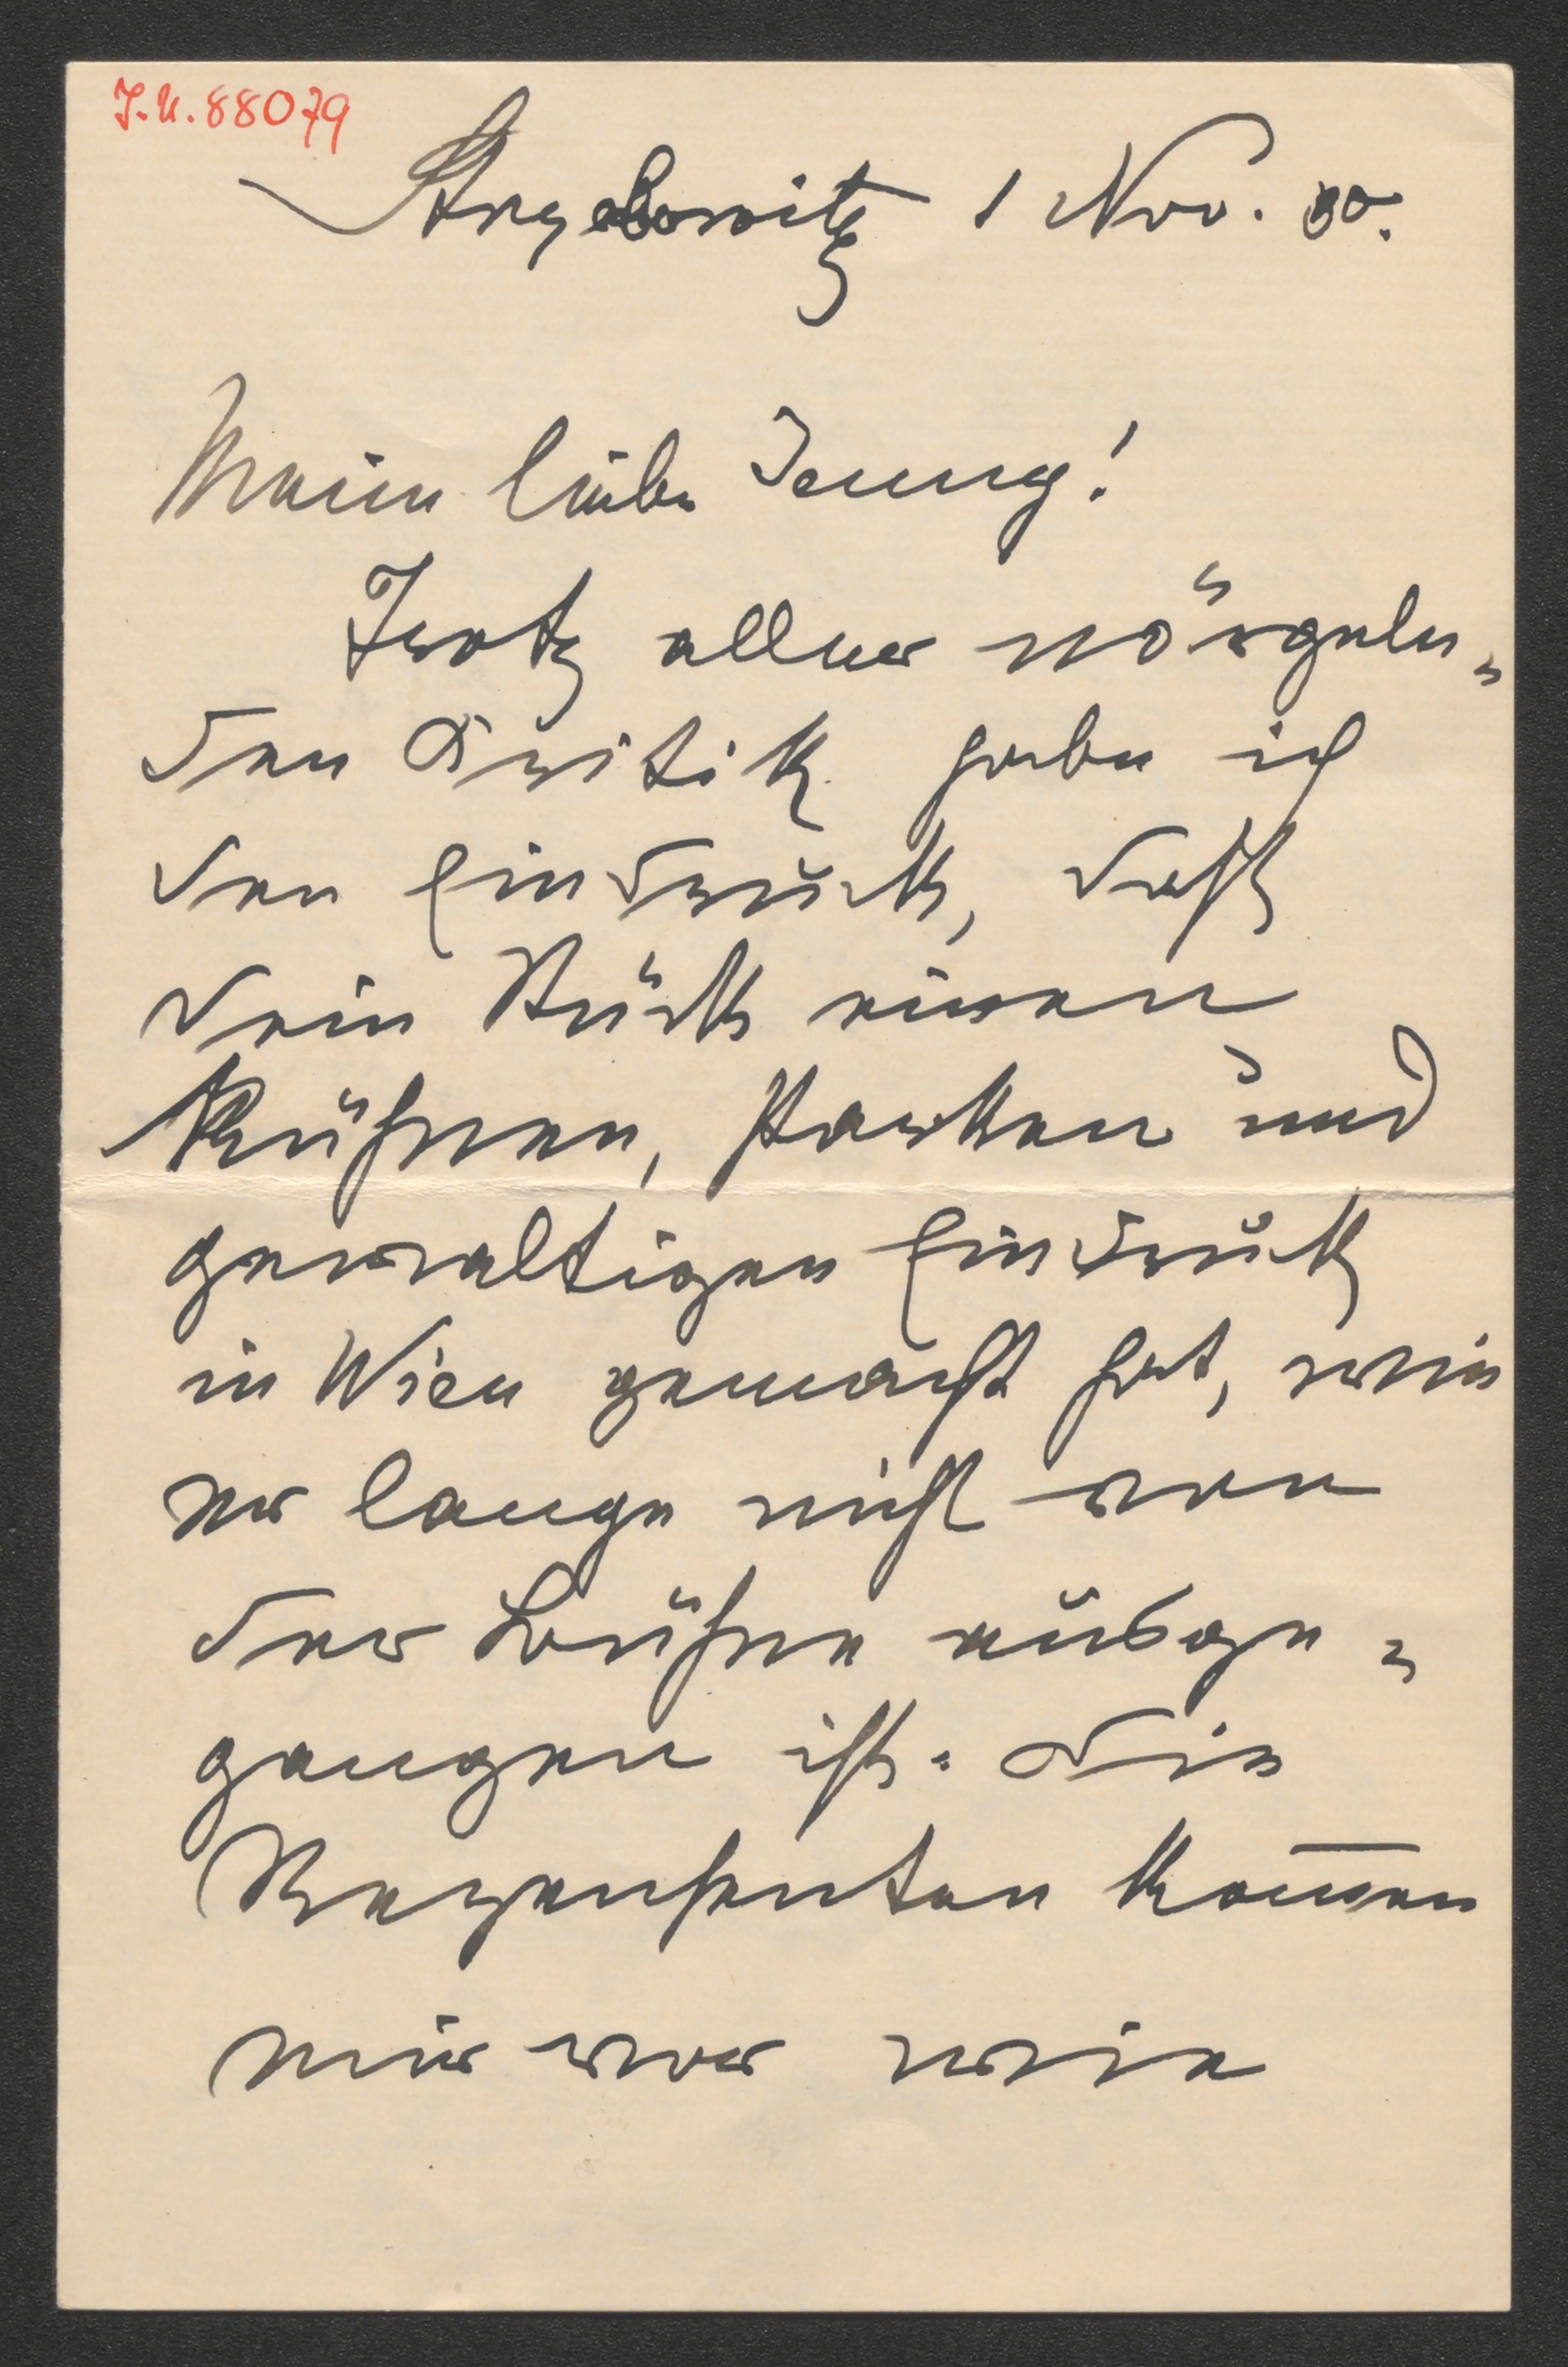 J.N. 88079
Strzebowitz 1 Nov. 00.
Meine liebe Jenny!
Trotz aller nörgeln=
den Kritik habe ich
den Eindruck, daß
dein Stück einen
kühnen, starken und
gewaltigen Eindruck
in Wien gemacht hat, wie
er lange nicht von
der Bühne ausge=
gangen ist. Die
Rezensenten kom̄en
mir vor wie